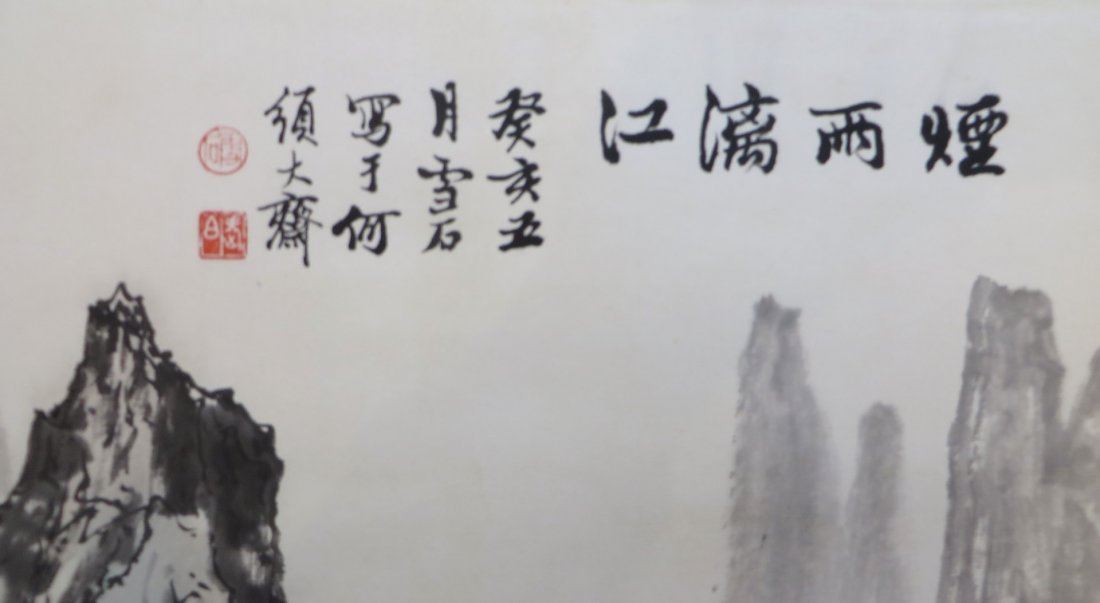 煙雨漓江
癸亥五
月雪石
寫于何
須大齋